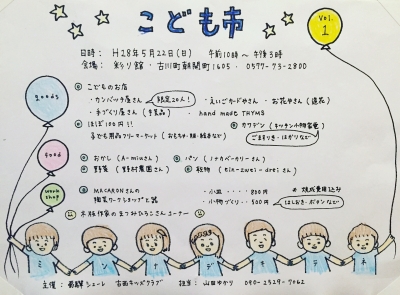 こども市
Vol. 1
日時： H28年5月22日(日) 午前10時～午後3時
会場： 彩り館・古川町朝開町1605・0577-73-2800
goods
こどものお店
・カンバッヂ屋さん 限定20人！ ・えいごカードやさん ・お花やさん
・手づくり屋さん (手芸品) hand made THYMS
ほぼ100円!!
子ども用品フリーマーケット (おもちゃ・服・絵本など)
カワデン (キッチン小物家電)
food
おかし (A-mieさん) パン (ナカベーカリーさん)
野菜 (野村農園さん) 穀物 (ein-zwei-dreiさん)
work shop
MACARONさんの
・小皿・・・・800円 ※焼成費用込み
・小物づくり・・500円 はしおき・ボタンなど
木版作家のまつみひろこさんコーナー
ミンナデキテネ
主催： 飛騨シューレ 古西キッズクラブ 担当： 山田ゆかり 090-2529-7062